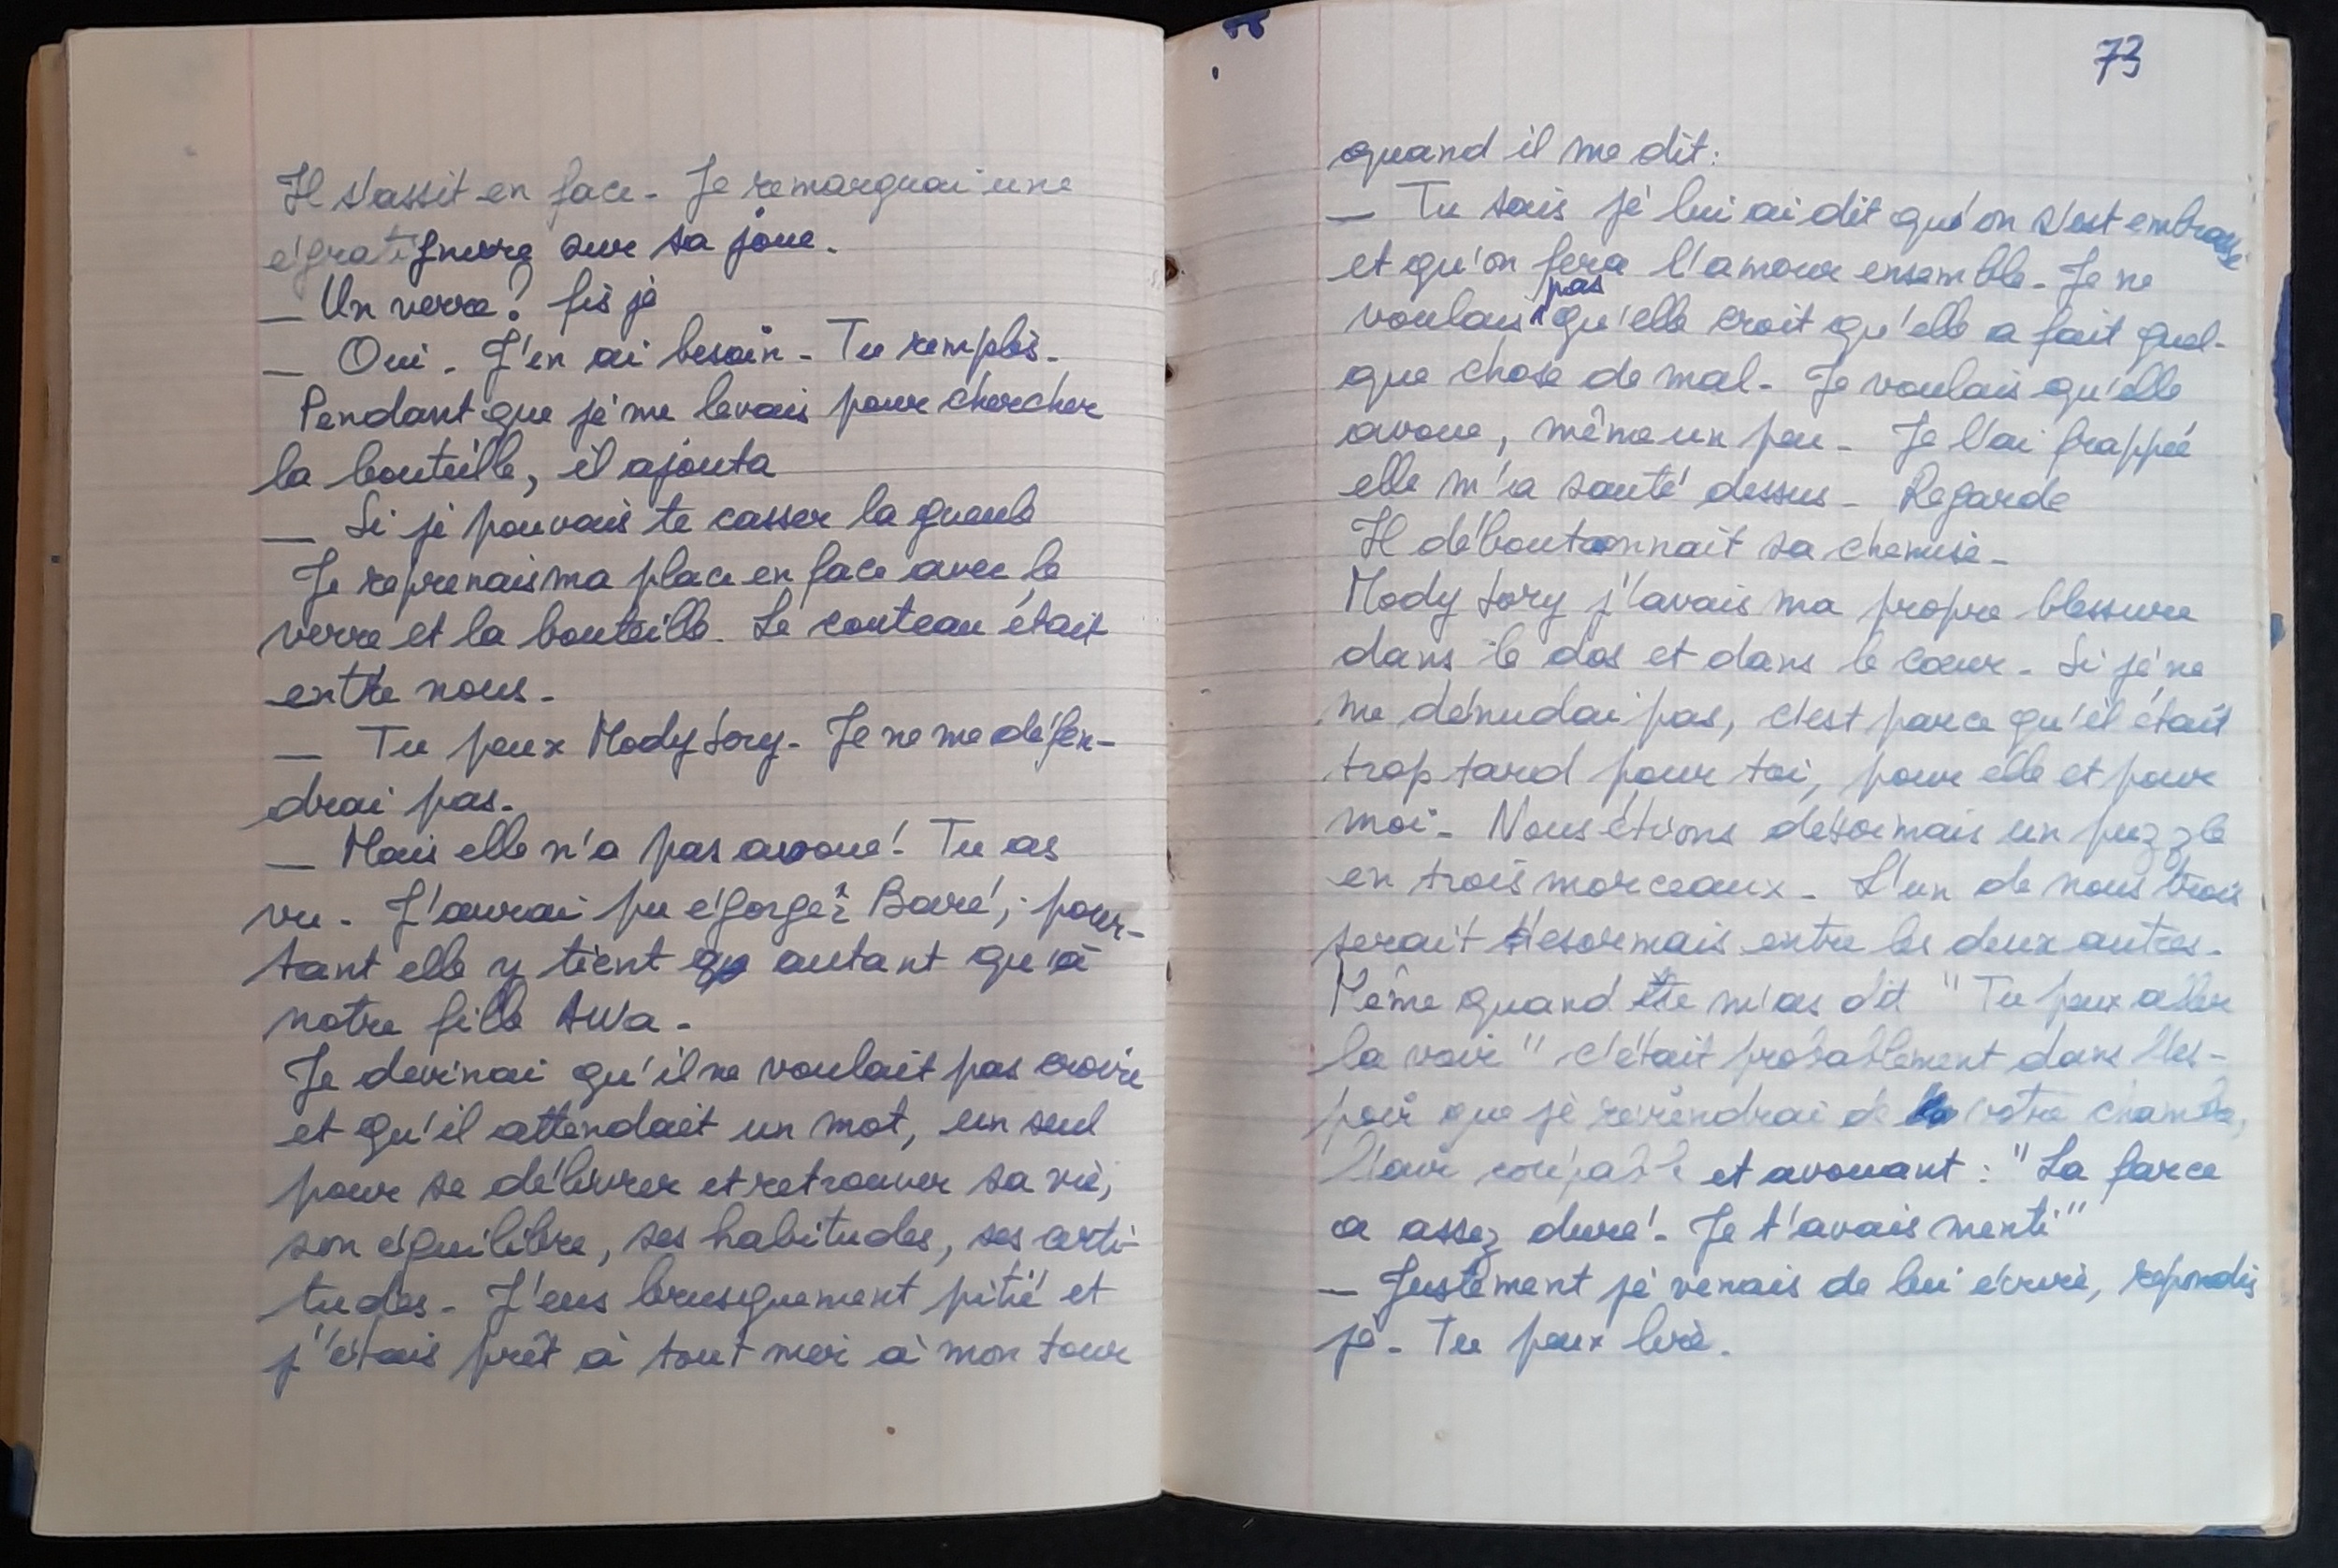 Il s'assit en face. Je remarquai une
égratignure sur sa joue.
— Un verre? fis je
— Oui. J'en ai besoin. Tu remplis.
Pendant que je me levais pour chercher
la bouteille, il ajouta
— Si je pouvais te casser la gueule
Je reprenais ma place en face avec le
verre et la bouteille. Le couteau était
entre nous.
— Tu peux Mody Sory. Je ne me défen-
drai pas.
— Mais elle n'a pas avoué! Tu as
vu. J'aurai pu égorger Baré, pour-
tant elle y tient autant qu'à
notre fille Awa.
Je devinai qu'il ne voulait pas croire
et qu'il attendait un mot, un seul
pour se délivrer et retrouver sa vie,
son équilibre, ses habitudes, ses certi-
tudes. J'eus brusquement pitié et
j'étais prêt à tout moi à mon tour
73
quand il me dit:
— Tu sais je lui ai dit qu'on s'est embrassé
et qu'on fera l'amour ensemble. Je ne
voulais pas qu'elle croit qu'elle a fait quel-
que chose de mal. Je voulais qu'elle
avoue, même un peu. Je l'ai frappée
elle m'a sauté dessus. Regarde
Il déboutonnait sa chemise.
Mody Sory j'avais ma propre blessure
dans le dos et dans le cœur. Si je ne
me dénudai pas, c'est parce qu'il était
trop tard pour toi, pour elle et pour
moi. Nous étions désormais un puzzle
en trois morceaux. L'un de nous trois
serait désormais entre les deux autres.
Même quand tu m'as dit "Tu peux aller
la voir" c'était probablement dans l'es-
poir que je reviendrai de votre chambre,
l'air coupable et avouant: "La farce
a assez duré. Je t'avais menti"
— Justement je venais de lui écrire, repondis
je. Tu peux lire.